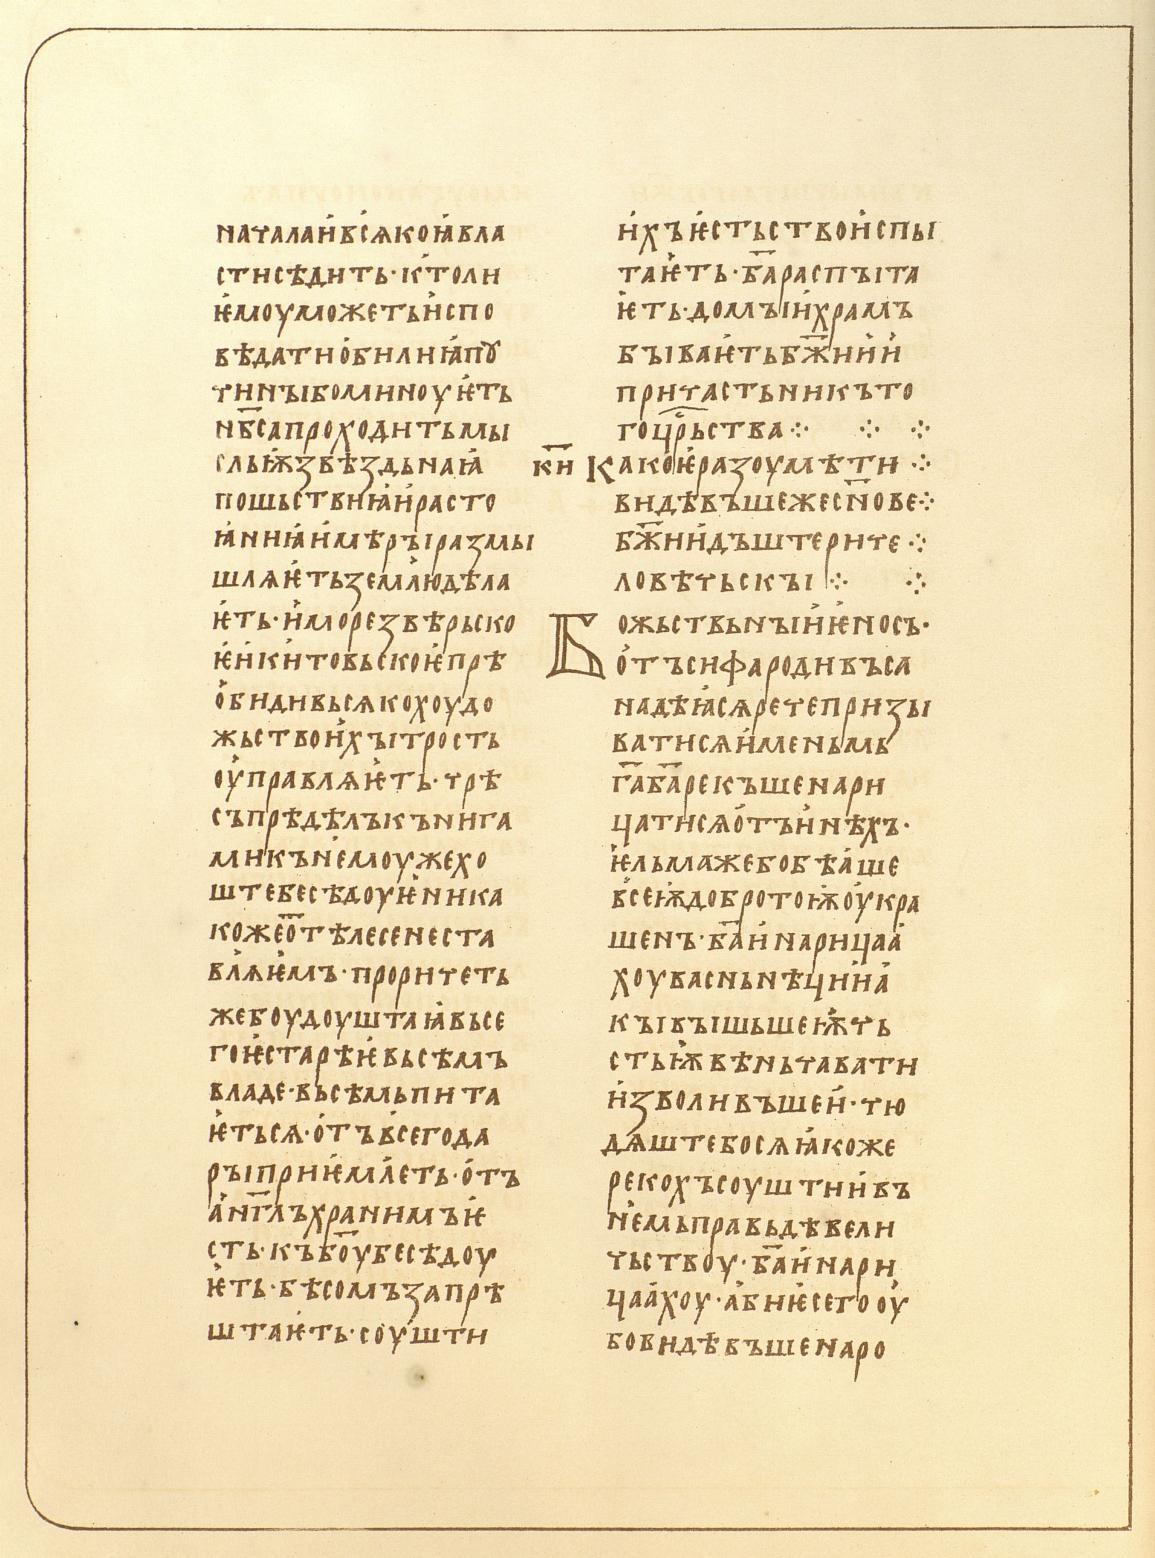 начала и҆ всѧкои҆ꙗ вла
сти сѣдить · к толи
ѥмоу можеть и҆спо
вѣдати о҆билиꙗ поу
чинꙑ бо миноуѥть
нб҃са проходить мꙑ
слиѭ звѣздьнаꙗ
пошьствиꙗ и҆ расто
ꙗниꙗ и҆ мѣрꙑ размꙑ
шлѧѥть землю дѣла
ѥть · и҆ море звѣрьско
ѥ и҆ китовьскоѥ прѣ
о҆бидивъ сѧко хоудо
жьство и҆ хꙑтрость
оу҆правлѧѥть · чрѣ
съ прѣдѣлъ кънига
ми къ немоу же хо
ште бесѣдоуѥ ника
коже ѿ тѣлесе неста
влꙗѥмъ · проричеть
же боудоуштаꙗ вьсе
го ѥстарѣѥ вьсѣмъ
владе · вьсѣмь пита
ѥтьсѧ · о҆тъ всего да
рꙑ приѥмлеть · о҆тъ
а҆нг҃лъ хранимъ ѥ
сть · къ бо҃у бесѣдоу
ѥть · бѣсомъ запрѣ
штаѥть · соушти
и҆хъ ѥстьство и҆спꙑ
таѥть · ба҃ распꙑта
ѥть · домъ и҆ храмъ
бꙑваѥть бж҃ии и҆
причастьникъ то
го цр҃ьства ⁘ ⁘ ⁘
к҃и Како ѥ разоумѣти ⁘
видѣвъше же сн҃ове ⁘
бж҃ии дъштери че ⁘
ловѣчьскꙑ ⁘ ⁘
Божьствьнꙑи ѥносъ ·
о҆тъ сифа роди въ сѧ
надѣꙗсѧ рече призꙑ
ватисѧ именьмь
г҃а ба҃ рекъше нари
цатисѧ о҆тъ и҆нѣхъ ·
ѥльма же бо бѣа҆ше
вьсеѭ добротоѭ оу҆кра
шенъ · ба҃ и҆ нарицаа҆
хоу васнь нѣции на҆
кꙑ вꙑшьшеѭ чь
стьѭ вѣньчавати
и҆зволивъше и҆ · чю
дѧште бо сѧ ꙗкоже
рекохъ соуштии въ
немь правьдѣ вели
чьствоу · ба҃ и҆ нари
цаа҆хоу · а҆биѥ сего оу҆
бо видѣвъше наро